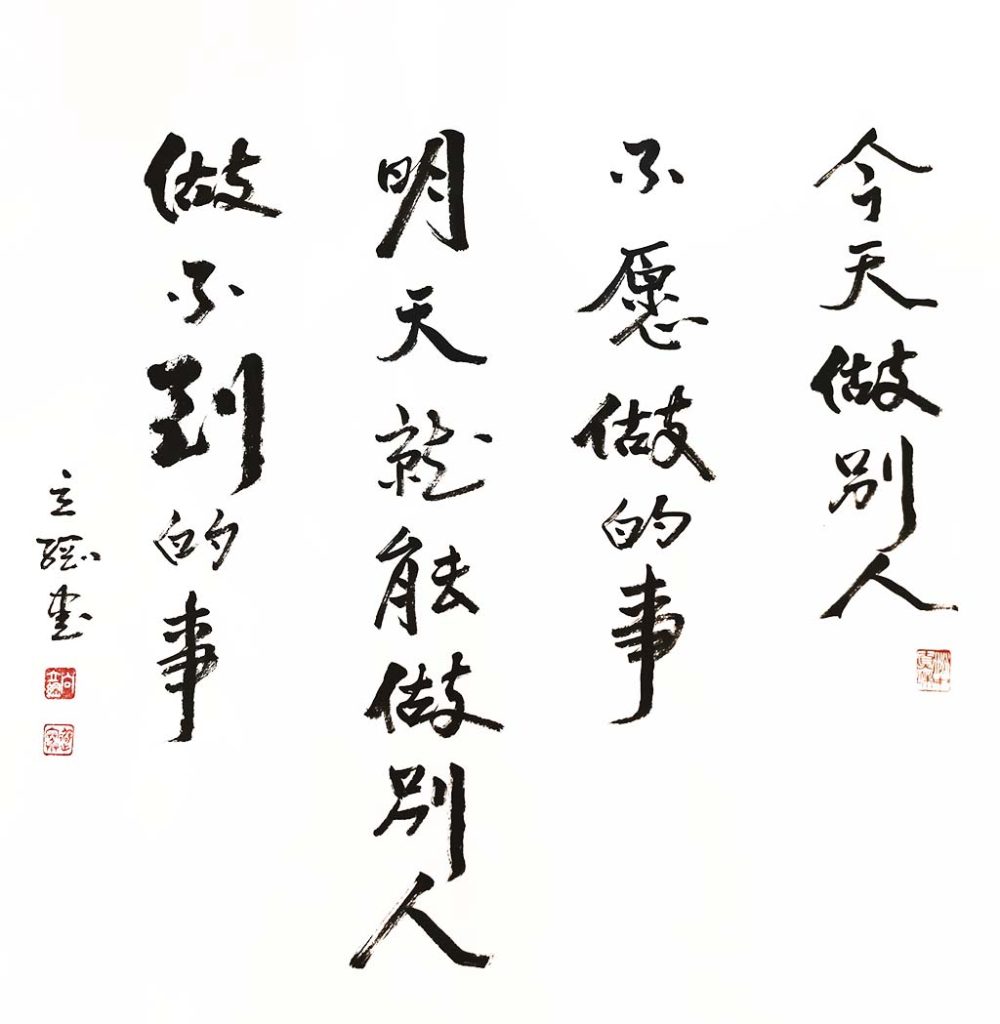 今天做别人
不愿做的事
明天就能做别人
做不到的事
立纲书